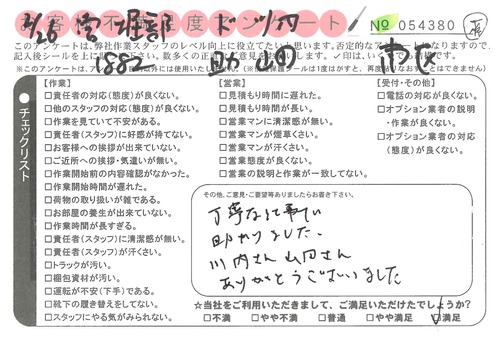 お客様不満足度アンケート
№ 054380
このアンケートは、弊社作業スタッフのレベル向上に役立てたいと思います。否定的なアンケートになりますので、
チェックリスト
【作業】
□責任者の対応(態度)が良くない。
□他のスタッフの対応(態度)が良くない。
□作業を見ていて不安がある。
□責任者(スタッフ)に好感が持てない。
□お客様への挨拶が出来ていない。
□ご近所への挨拶・気遣いが無い。
□作業開始前の内容確認がなかった。
□作業開始時間が遅れた。
□荷物の取り扱いが雑である。
□お部屋の養生が出来ていない。
□作業時間が長すぎる。
□責任者(スタッフ)に清潔感が無い。
□責任者(スタッフ)が汗くさい。
□トラックが汚い。
□梱包資材が汚い。
□運転が不安(下手)である。
□靴下の履き替えをしてない。
□スタッフにやる気がみられない。
【営業】
□見積もり時間に遅れた。
□見積もり時間が長い。
□営業マンに清潔感が無い。
□営業マンが煙草くさい。
□営業マンが汗くさい。
□営業態度が良くない。
□営業の説明と作業が一致してない。
【受付・その他】
□電話の対応が良くない。
□オプション業者の説明
・作業が良くない。
□オプション業者の対応
(態度)が良くない。
その他、ご意見・ご要望等ありましたらお書き下さい。
丁寧な
助かりました。
川内さん 山口さん
ありがとうございました
☆当社をご利用いただきまして、ご満足いただけたでしょうか?
□不満 □やや不満 □普通 □やや満足 □満足